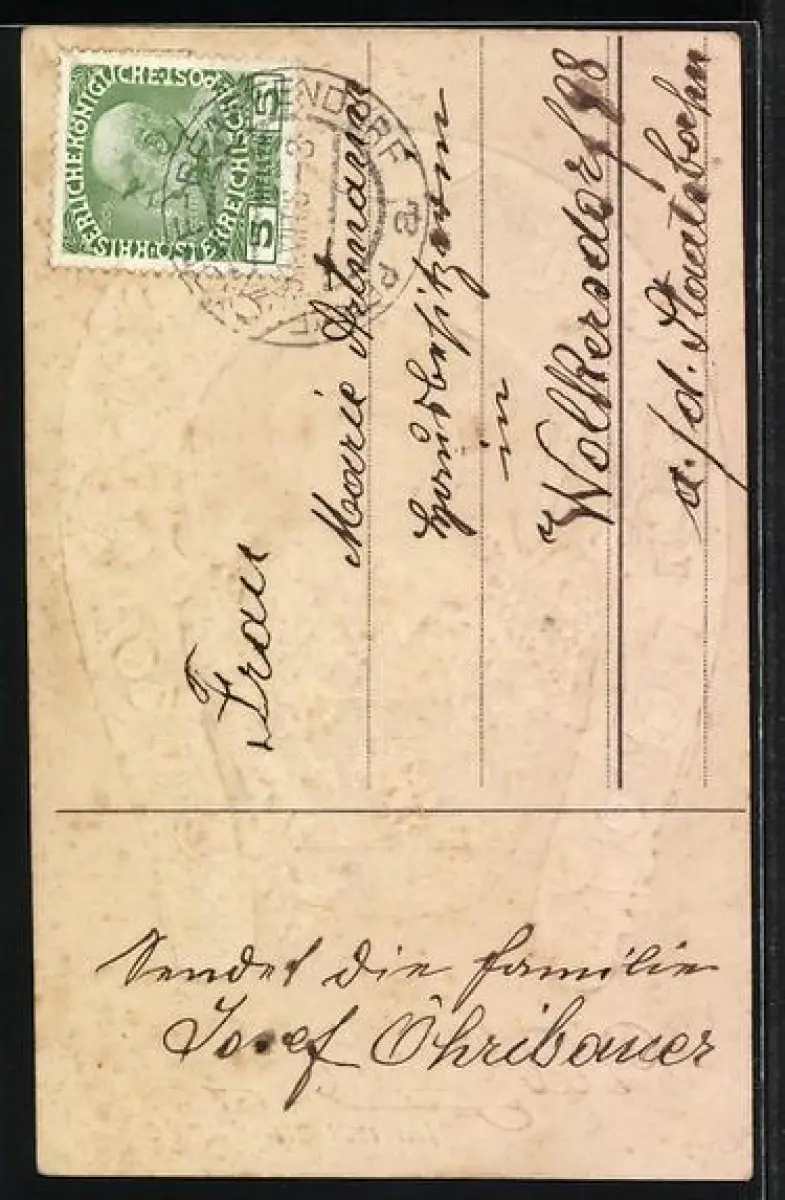 KAISERLICHEKÖNIGLICHE
ÖSTERREICHISCHE
POST
5 HELLER 5
Frau
Marie Artmann
Hausbesitzerin
in
Wolkersdorf 98
a./d. Staatsbahn
Sendet die Familie
Josef Öhribauer